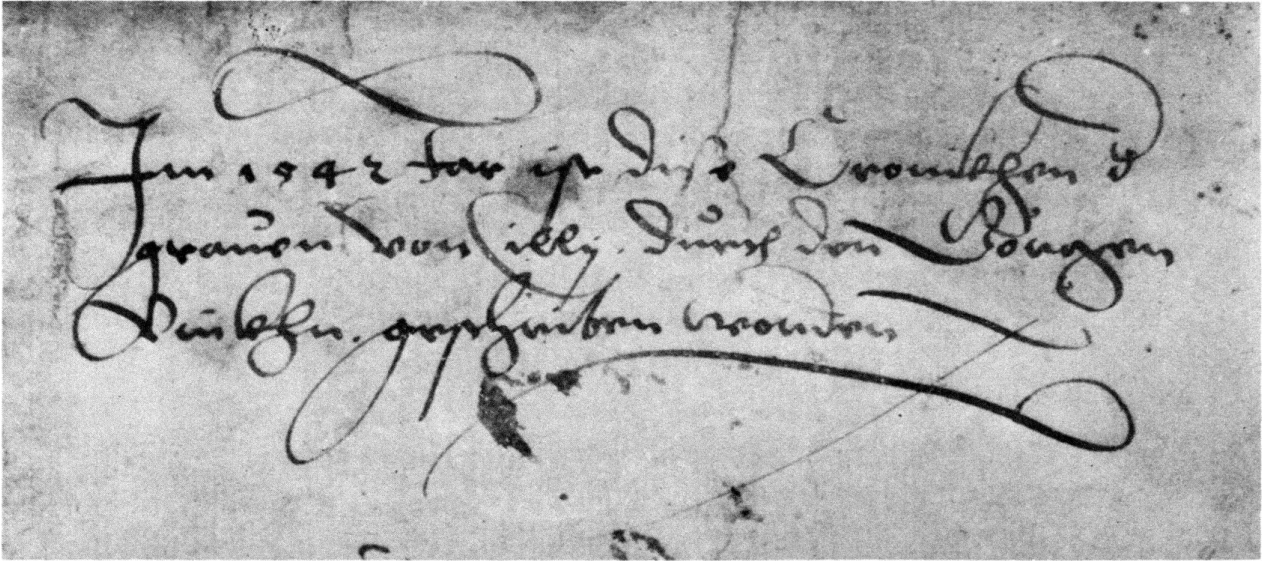 Im 1542 Jar ist dise Cronickhen d
graven von Cilly. durch den Görgen
geschriben worden